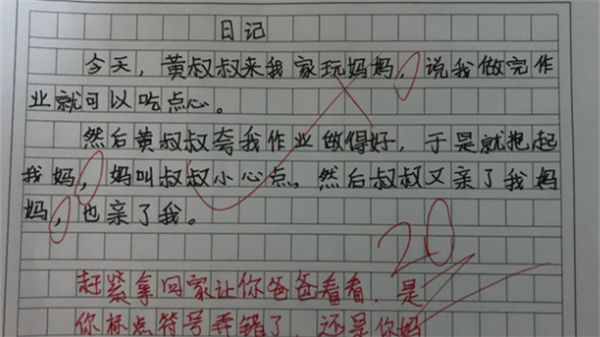 日记
今天，黄叔叔来我家玩妈妈，说我做完作
业就可以吃点心。
然后黄叔叔夸我作业做得好，于是就抱起
我妈，妈叫叔叔小心点。然后叔叔又亲了我妈
妈，也亲了我。
20
赶紧拿回家让你爸爸看看，是
你标点符号弄错了，还是你妈